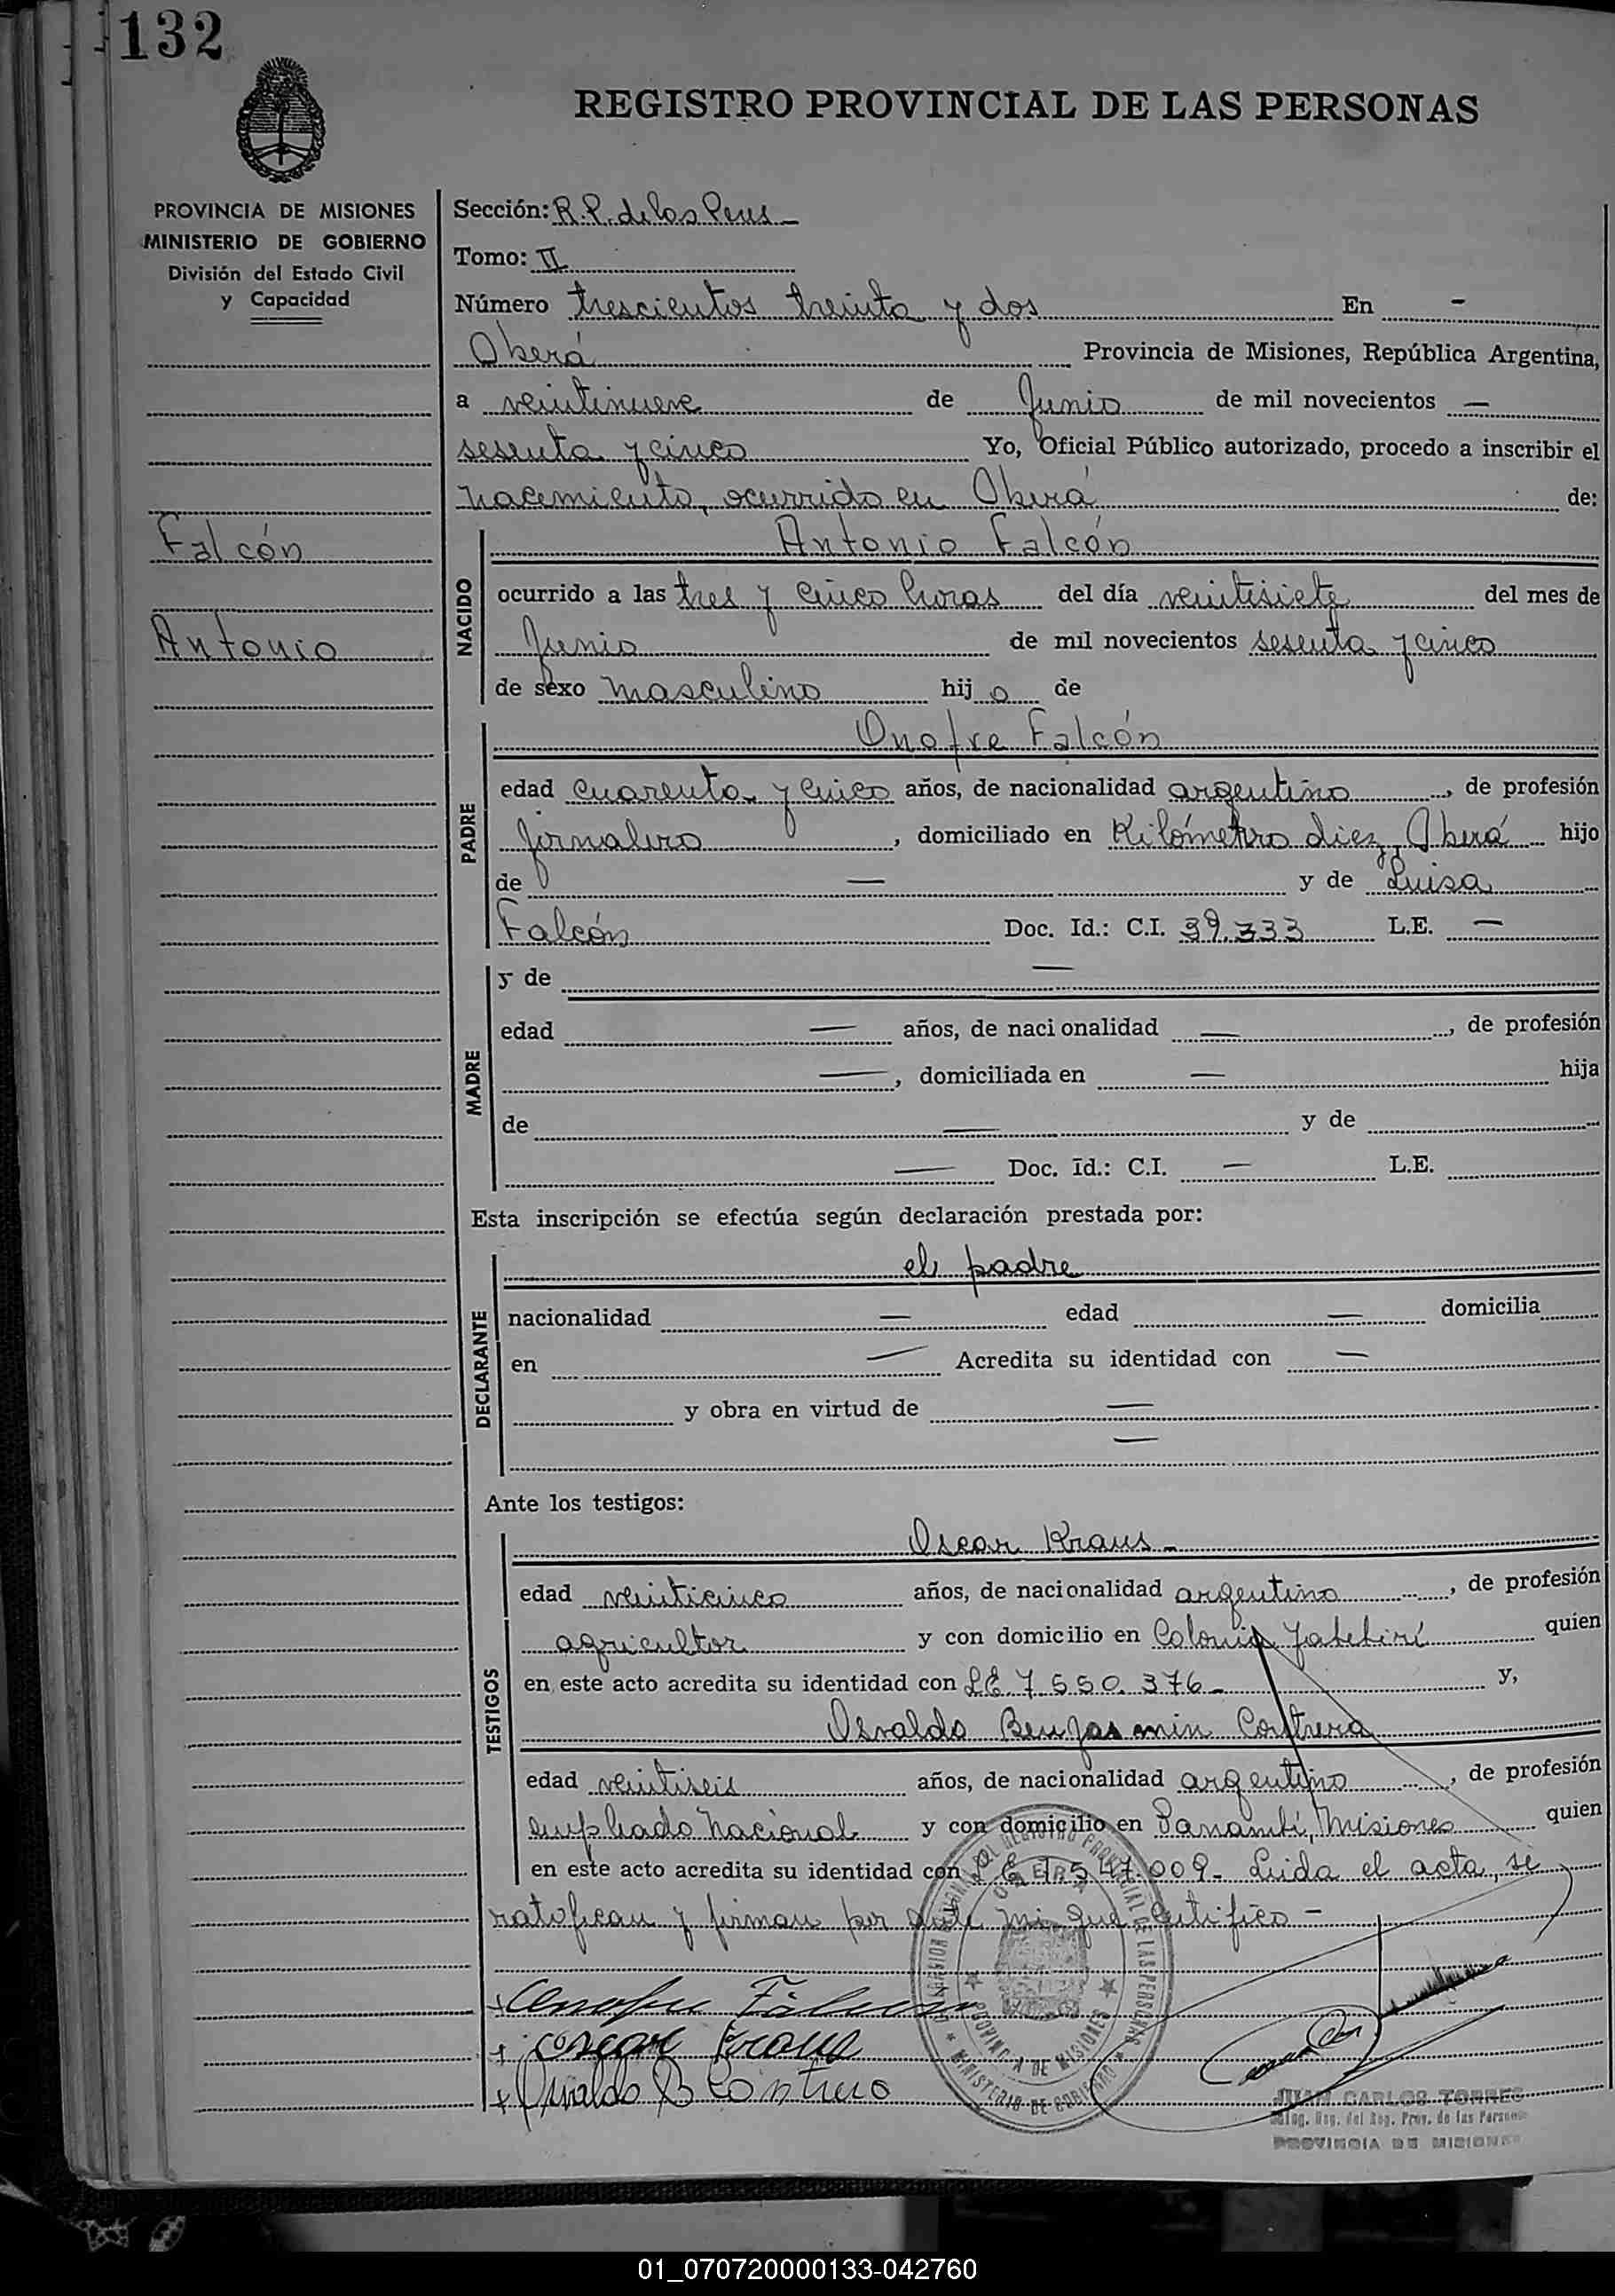 132
REGISTRO PROVINCIAL DE LAS PERSONAS
PROVINCIA DE MISIONES
MINISTERIO DE GOBIERNO
División del Estado Civil
y Capacidad
Falcón
Antonio
Sección: R.P. de las Pers
Tomo: II
Número trescientos treinta y dos En -
Oberá Provincia de Misiones, República Argentina,
a veintinueve de Junio de mil novecientos —
sesenta y cinco Yo, Oficial Público autorizado, procedo a inscribir el
nacemiento, ocurrido en Oberá de:
NACIDO
Antonio Falcón
ocurrido a las tres y cinco horas del día veintisiete del mes de
Junio de mil novecientos sesenta y cinco
de sexo masculino hij o de
PADRE
Onofre Falcón
edad cuarenta y cinco años, de nacionalidad argentino, de profesión
jornalero, domiciliado en Kilómetro diez, Oberá hijo
de — y de Luisa
Falcón Doc. Id.: C.I. 39.333 L.E. —
MADRE
y de —
edad — años, de nacionalidad —, de profesión
—, domiciliada en — hija
de — y de
— Doc. Id.: C.I. — L.E.
Esta inscripción se efectúa según declaración prestada por:
DECLARANTE
el padre
nacionalidad — edad — domicilia
en — Acredita su identidad con —
y obra en virtud de —
—
Ante los testigos:
TESTIGOS
Oscar Kraus -
edad veinticinco años, de nacionalidad argentino, de profesión
agricultor y con domicilio en Colonia Yabebirí quien
en este acto acredita su identidad con LE 7.550.376 - y,
Osvaldo Benjasmin Contrera
edad veintiseis años, de nacionalidad argentino, de profesión
empleado Nacional y con domicilio en Panambí, Misiones quien
en este acto acredita su identidad con L E 7.547.009 - Leida el acta, se
ratofican y firman por ante mi que certifico -
Onofre Falcon
Oscar Kraus
Osvaldo B Contrera
OBERA
PROVINCIA DE MISIONES
MINISTERIO DE GOBIERNO
JUAN CARLOS TORRES
Reg. del Reg. Prov. de las Personas
PROVINCIA DE MISIONES
01_070720000133-042760